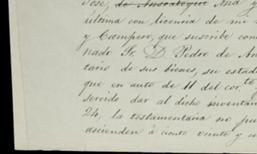 José, de Ansoategui Ana y
última con licencia de mi
y Campero, que suscribe como
nado Sr. D. Pedro de An
tario de sus bienes, su estad
que en auto de 11 del corte
servido dar al dicho inventar
24, la testamentaria no pu
ascienden á ciento veinte y c